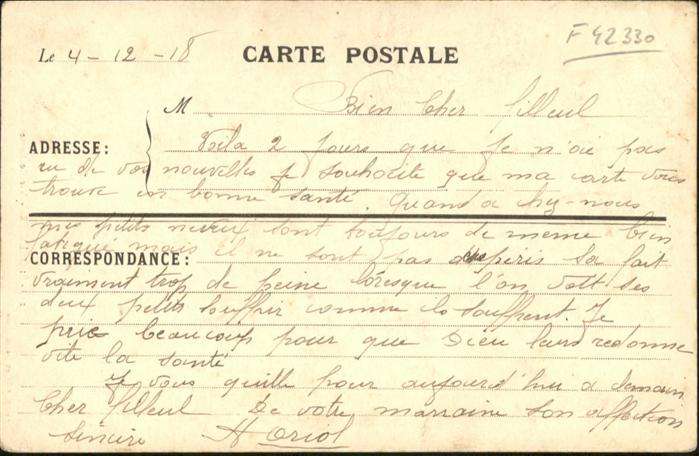 F 42330
Le 4-12-18
CARTE POSTALE
M Bien Cher filleul
ADRESSE: Voila 2 jours que je n'aie pas
eu de vos nouvelles je souhaite que ma carte vous
trouve en bonne santé. Quand a chez-nous
mes petits neveux sont toujours de meme bien
fatigué mais il ne sont pas
CORRESPONDANCE: sa fait
vraiment trop de peine loresque l'on voit ses
deux petits souffrir comme ils souffrent. Je
prie beaucoup pour que Dieu leurs redonne
vite la santé
Je vous quitte pour aujourd'hui a demain
Cher filleul De votre marraine son affection
sincère H Oriol